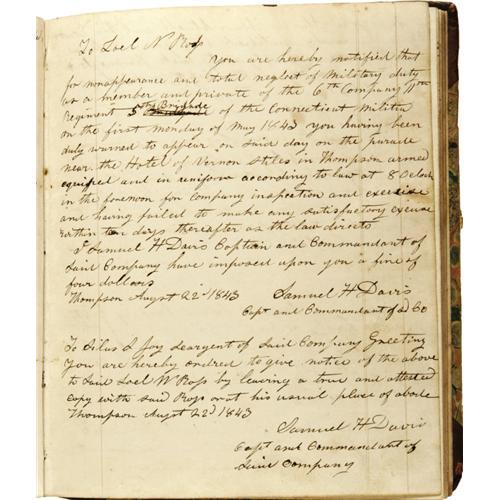 To Loel N Ross
You are hereby notified that
for nonappearance and total neglect of Military duty
as a member and private of the 6th Company 11th
Regiment 5th Brigade of the Connecticut Militia
on the first monday of May 1843 you having been
duly warned to appear on said day on the parade
near the Hotel of Vernon Stiles in Thompson armed
equipped and in uniform according to law at 8 Oclock
in the forenoon for Company inspection and exercise
and having failed to make any satisfactory excuse
within ten days thereafter as the law directs
I Samuel H Davis Captain and Commandant of
Said Company have imposed upon you a fine of
four dollars
Thompson Augst 22d 1843
Samuel H Davis
Capt and Commandant of sd Co
To Silus I Joy Seargent of Said Company Greeting
You are hereby ordred to give notice of the above
to Said Loel N Ross by leaving a true and attested
Copy with said Ross or at his usual place of abode
Thompson Augst 22d 1843
Samuel H Davis
Capt and Commandant of
Said Company